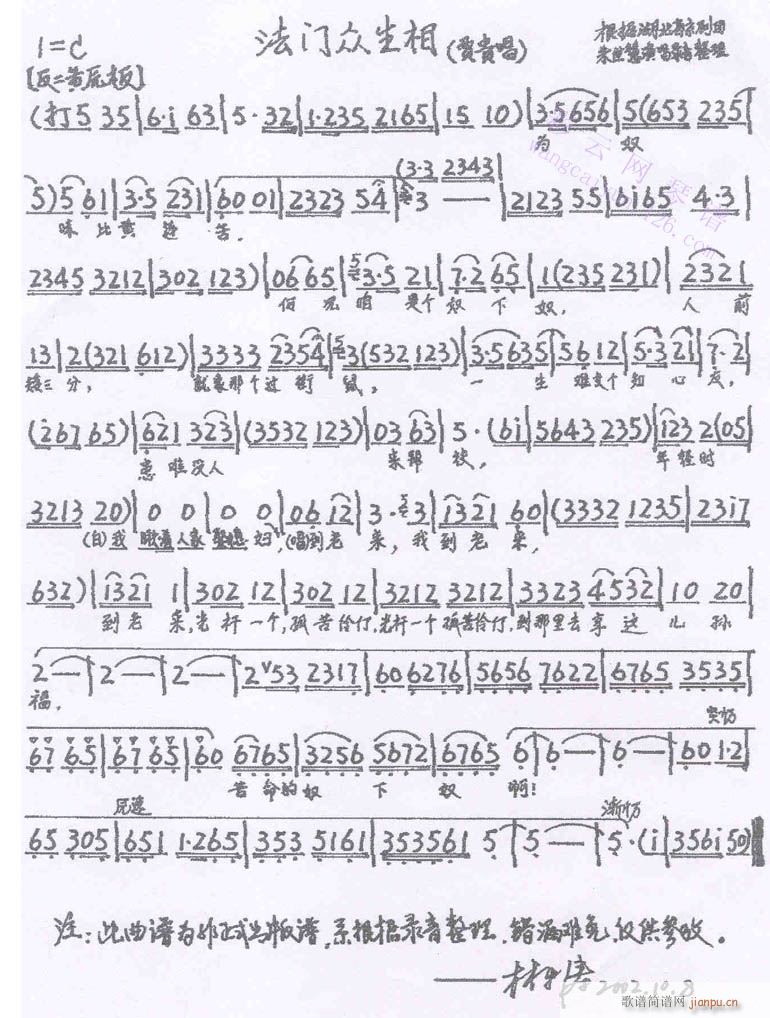 1=C
法门众生相(贾贵唱)
根据湖北省京剧团
朱世慧演唱录音整理
[反二黄原板]
(打5 35|6·i 63|5·32|1·235 2165|15 10)|3·5656|5(653 235|
为 奴
5)5 61|3·5 231|60 01|2323 54|3 — |2123 55|6i65 4·3|
(3·3 2343
味 比 黄 连 苦,
2345 3212|302 123)|06 65|3·5 21|7·2 65|1(235 231)|2321
何况咱 是个奴下奴, 人前
13|2(321 612)|3333 2354|3(532 123)|3·5635|56 12|5·3 21|7·2
矮三分, 就象那个过街鼠, 一生 难交个知心友,
(267 65)|621 323|(3532 123)|03 63|5·(6i|5643 235)|123 2(05|
患难没人 来帮扶, 年轻时
3213 20)|0 0|0 0|06 12|3·3|1321 60|(3332 1235|23i7
(白)我 瞅着人家 媳妇,(唱)到老来,我到老来,
632)|1321 1|302 12|302 12|3212 3212|3323 4532|10 20
到老来,光杆一个,孤苦伶仃,光杆一个孤苦伶仃,到那里去享这儿孙
2—|2—|2—|2ᵛ53 2317|60 6276|5656 7622|6765 3535
福,
突忉
67 65|67 65|60 6765|3256 5672|6765 6|6—|6—|60 1·2
苦命的奴下奴啊!
原速
渐忉
65 305|651 1·265|353 5161|353561 5|5—|5·(i|356i 50)
注:此曲谱为非正式出版谱,系根据录音整理,错漏难免,仅供参考。
2002.10.8
歌谱简谱网 jianpu.cn